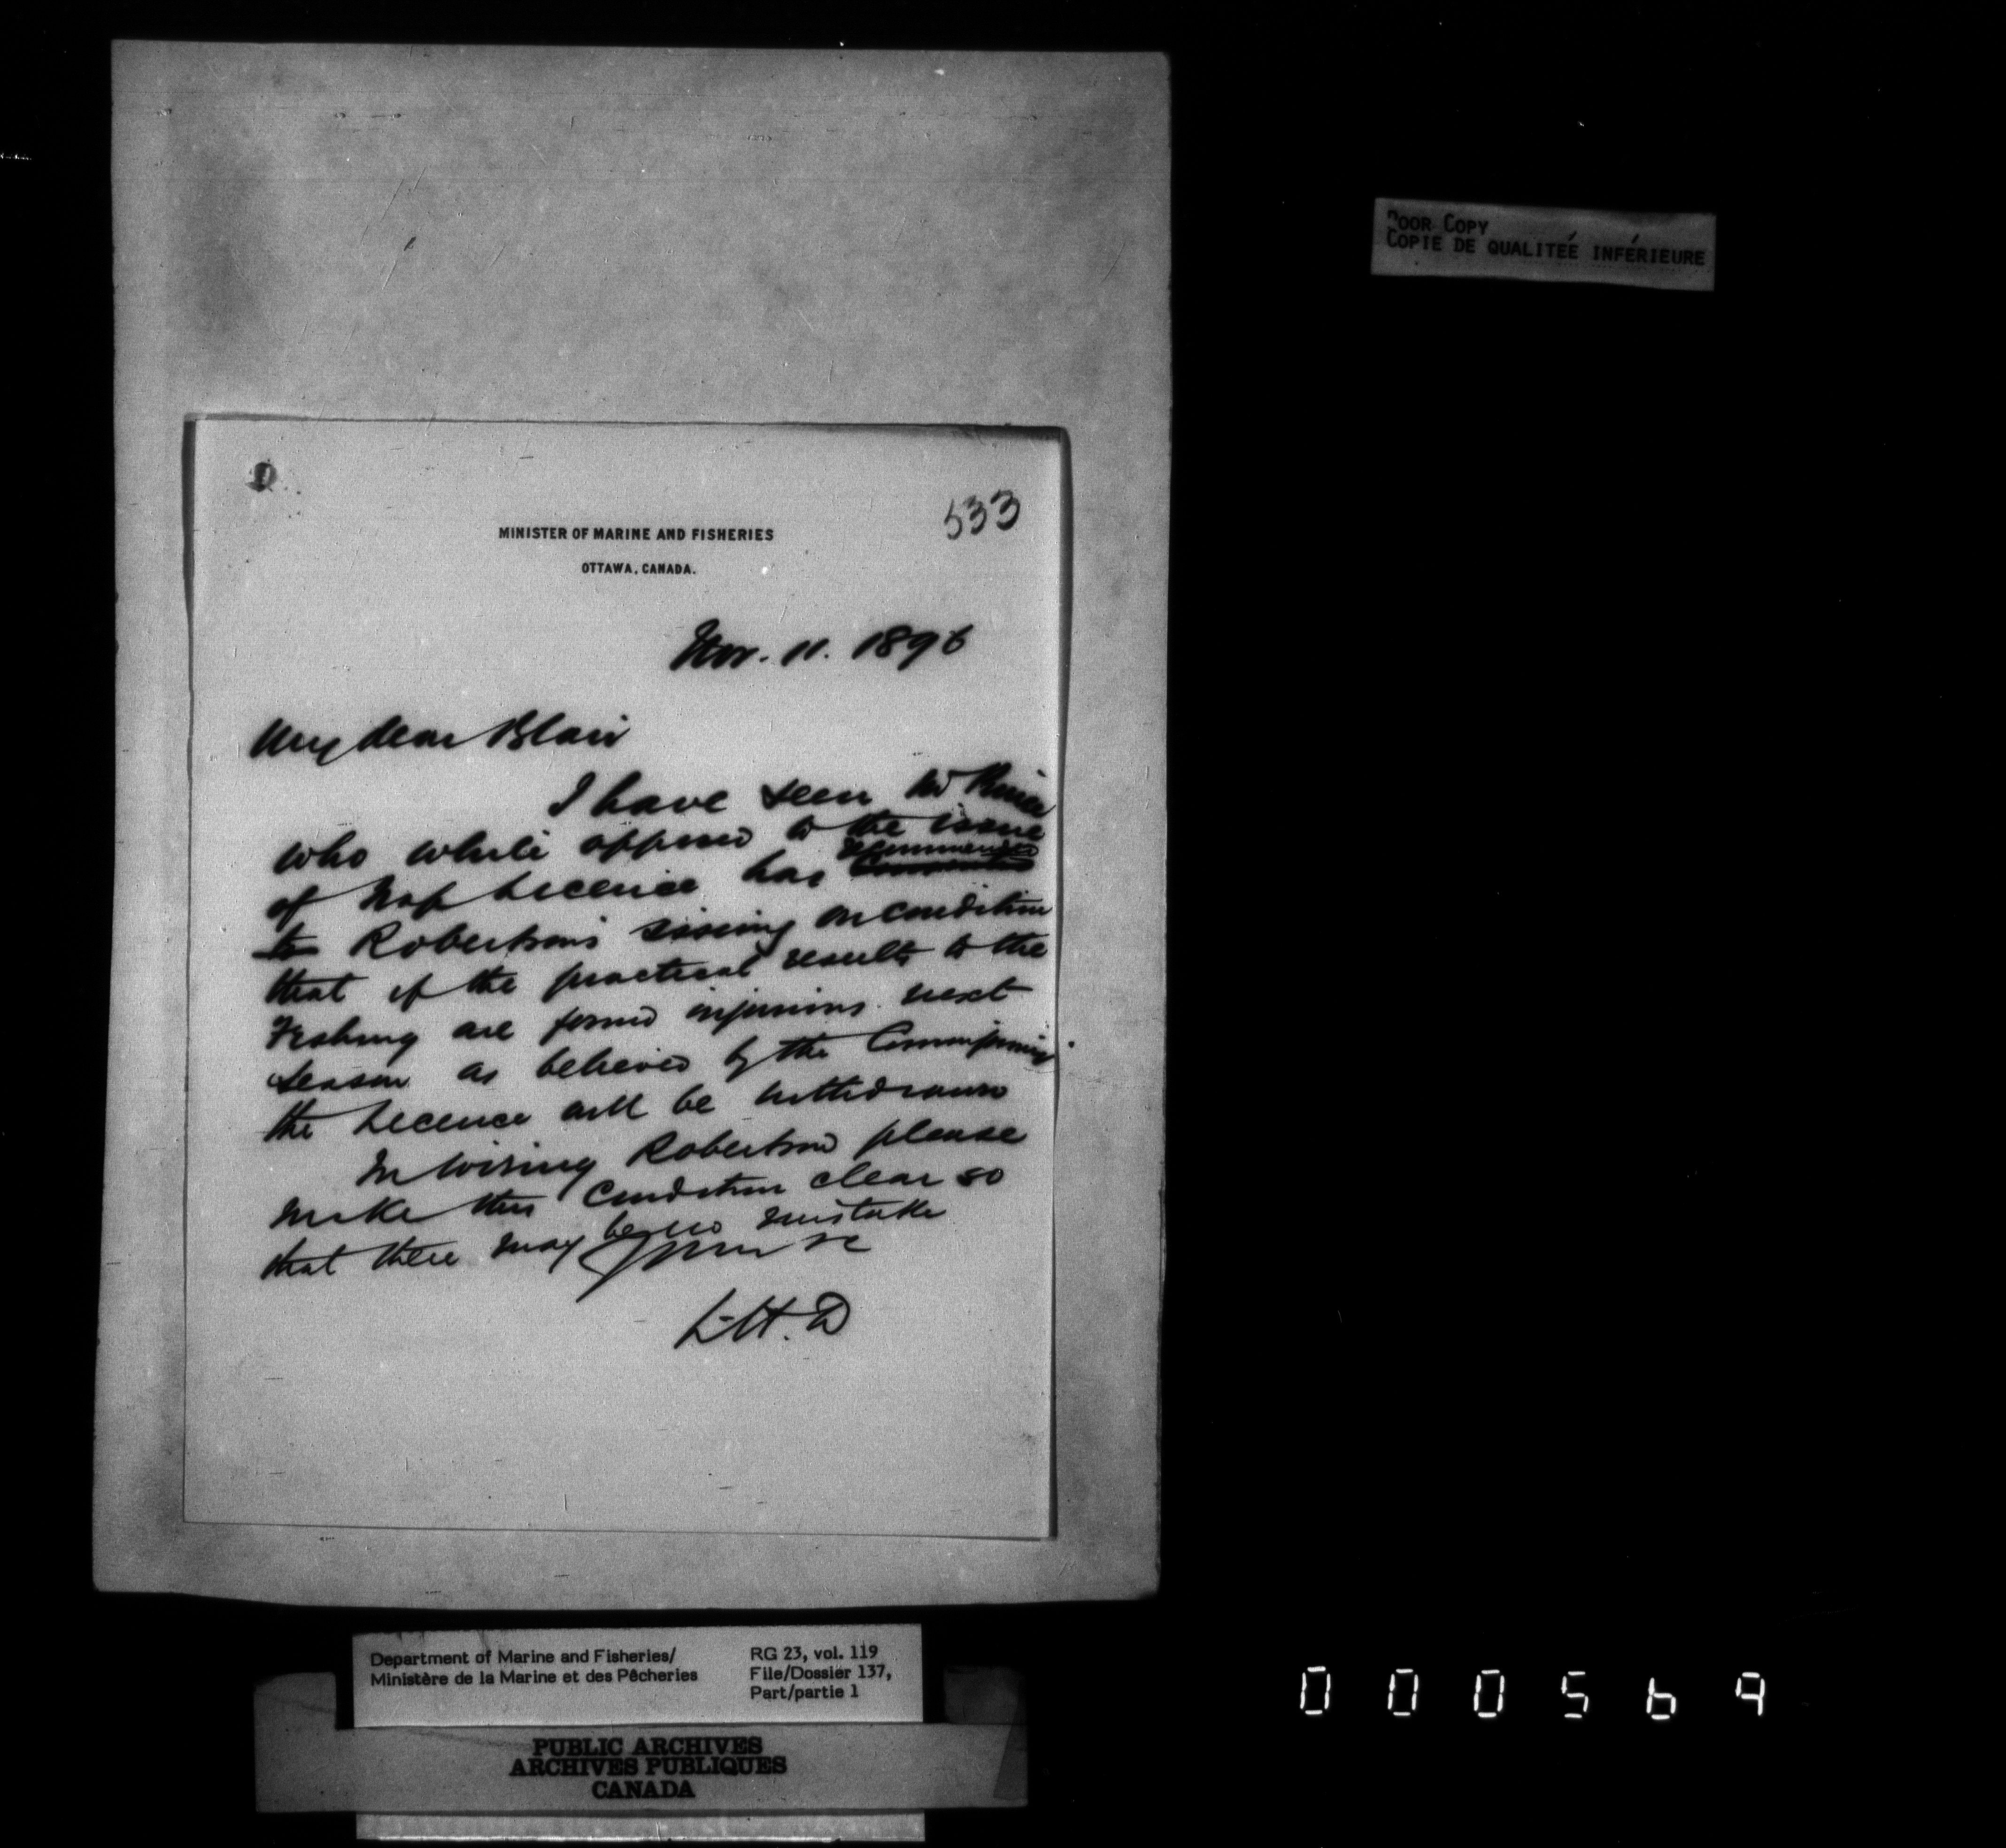 POOR COPY
COPIE DE QUALITEÉ INFÉRIEURE
533
MINISTER OF MARINE AND FISHERIES
OTTAWA, CANADA.
Nov. 11. 1896
My dear Blair
I have seen Mr
who while opposed to the issue
of Trap Licence has recommended
to Robertson's on condition
that if the practical results to the
Fishing are found injurious next
season as believed by the
the Licence will be withdrawn
In wiring Robertson please
make this Condition clear so
that there may be no mistake
Yours &c
L.H.D
Department of Marine and Fisheries/
Ministère de la Marine et des Pêcheries
RG 23, vol. 119
File/Dossier 137,
Part/partie 1
PUBLIC ARCHIVES
ARCHIVES PUBLIQUES
CANADA
000569